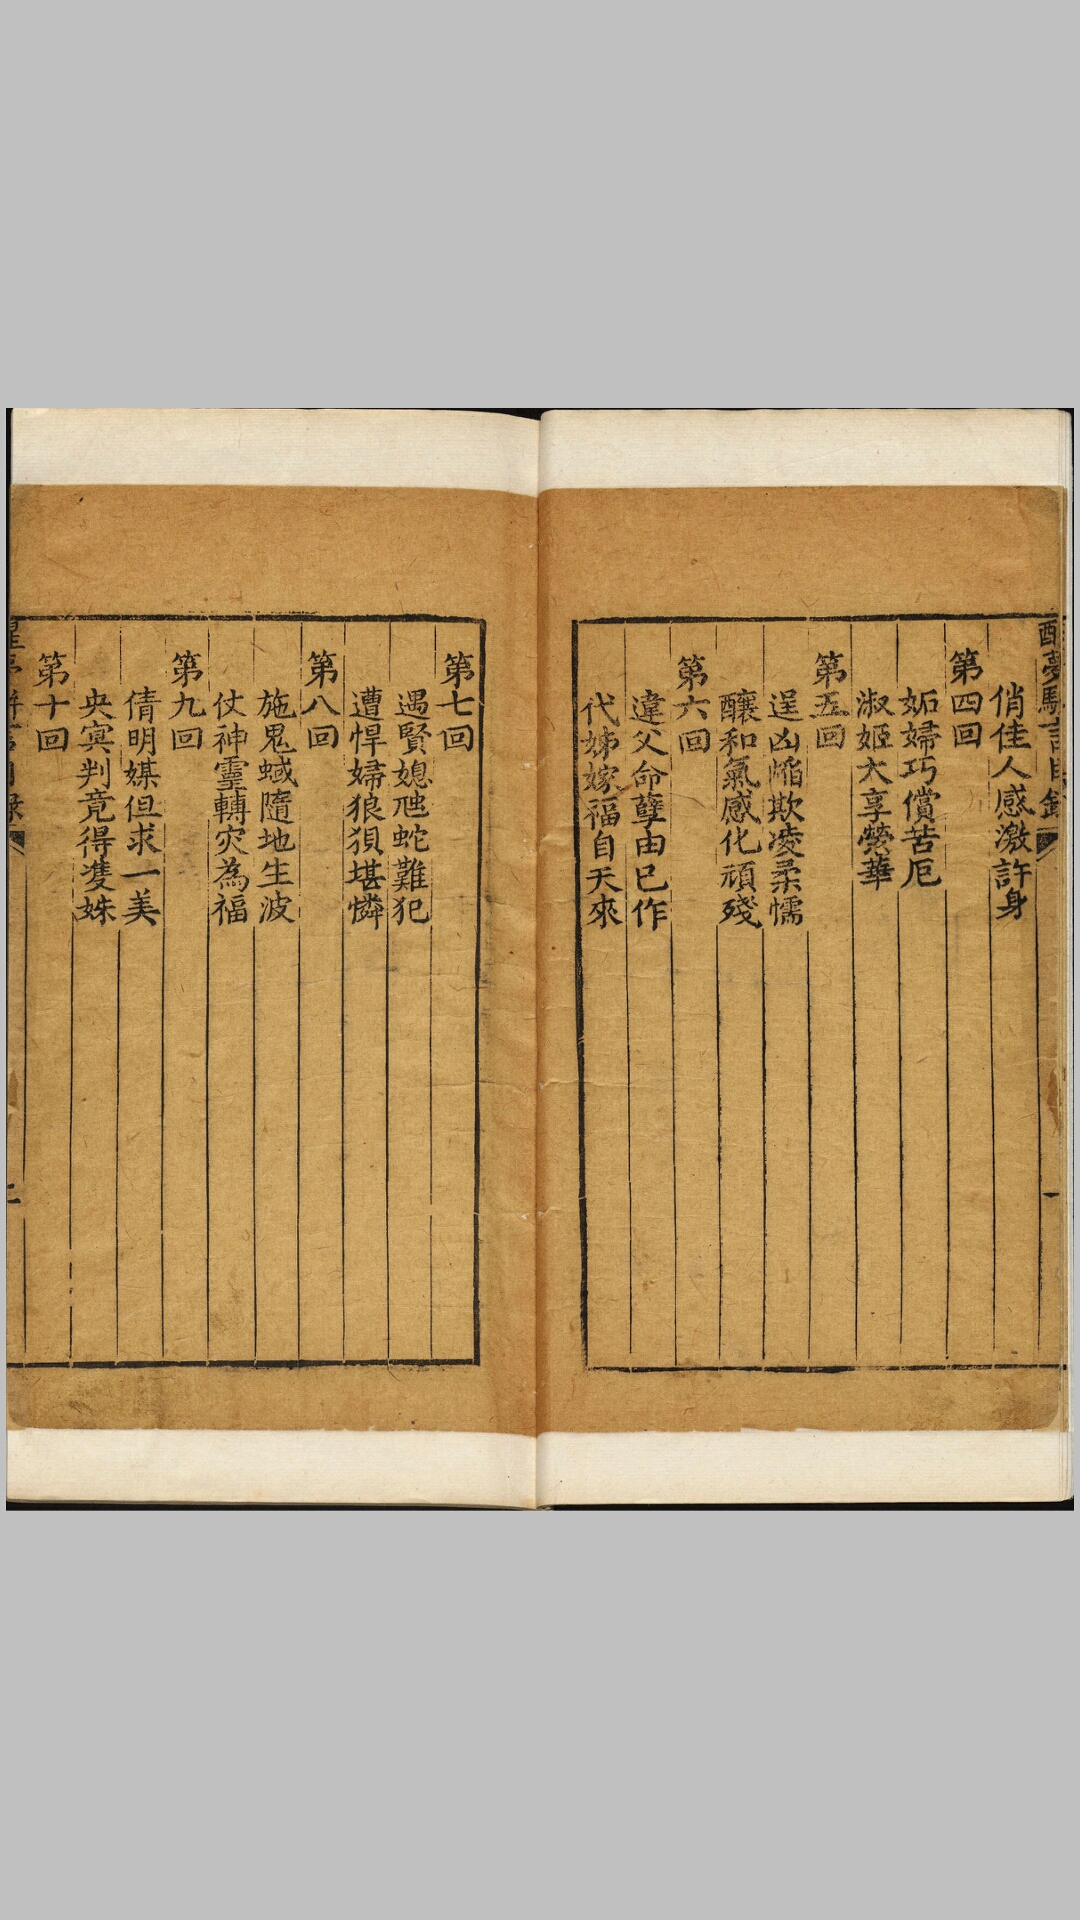 俏佳人感激許身
第四回
妬婦巧償苦厄
淑姬大享榮華
第五回
逞凶慆欺凌柔懦
釀和氣感化頑殘
第六回
違父命孽由已作
代姊嫁福自天來
第七回
遇賢媳虺蛇難犯
遭悍婦狼狽堪憐
第八回
施鬼蜮隨地生波
仗神靈轉灾為福
第九回
倩明媒但求一美
央冥判竟得雙姝
第十回